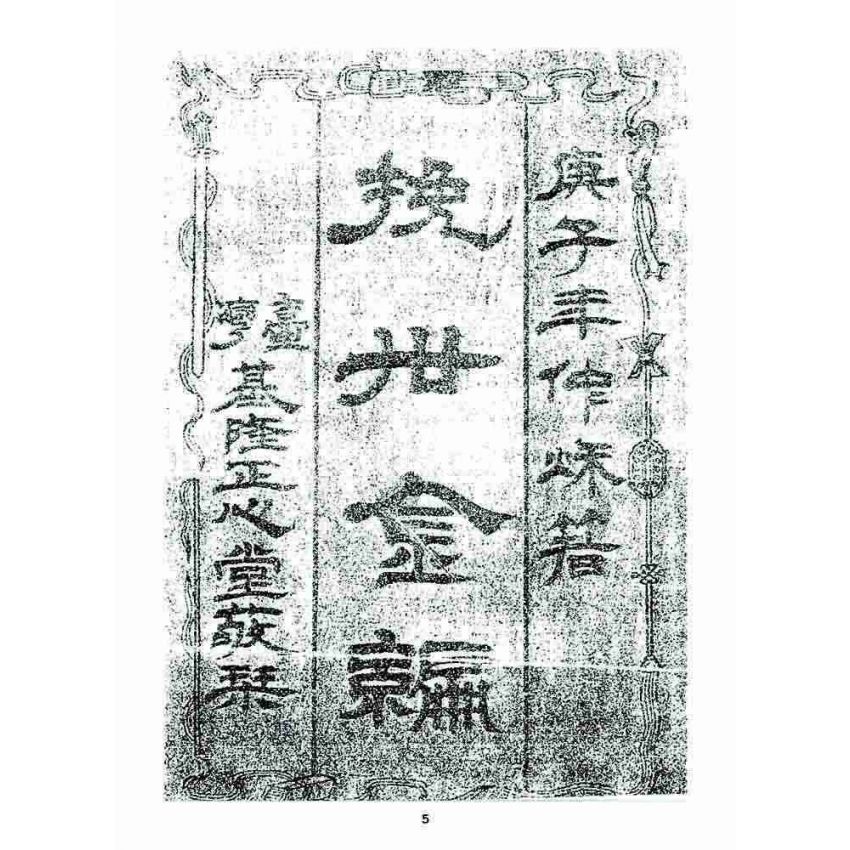 庚子年仲秋著
挽世金編
臺灣基隆正心堂敬栞
5